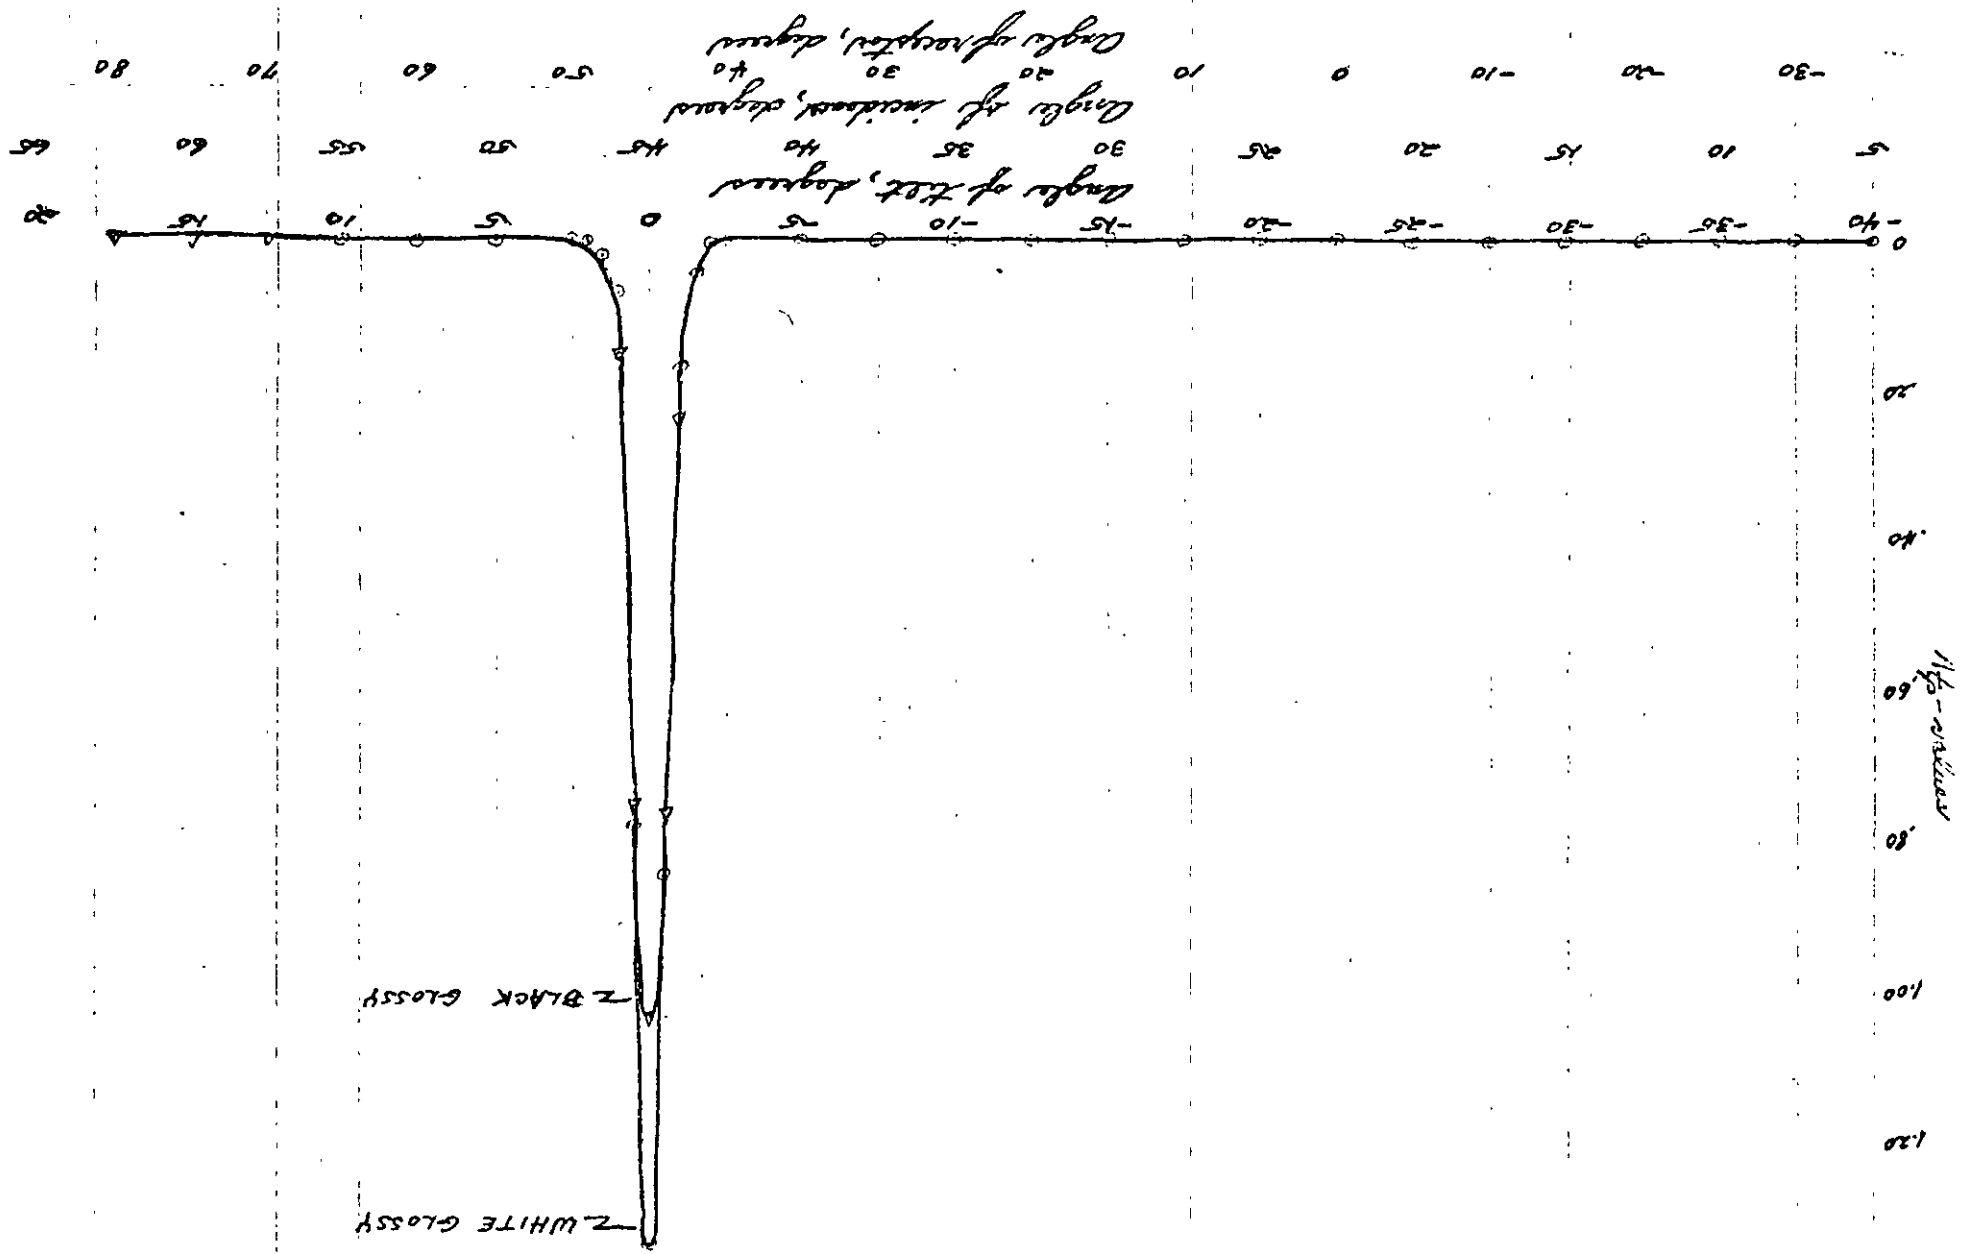 Z WHITE GLOSSY
1.20
Z BLACK GLOSSY
1.00
.80
.60
values
.40
.20
0
-40 -35 -30 -25 -20 -15 -10 -5 0 5 10 15 20
Angle of tilt, degrees
5 10 15 20 25 30 35 40 45 50 55 60 65
Angle of incidence, degrees
-30 -20 -10 0 10 20 30 40 50 60 70 80
Angle of receptor, degrees